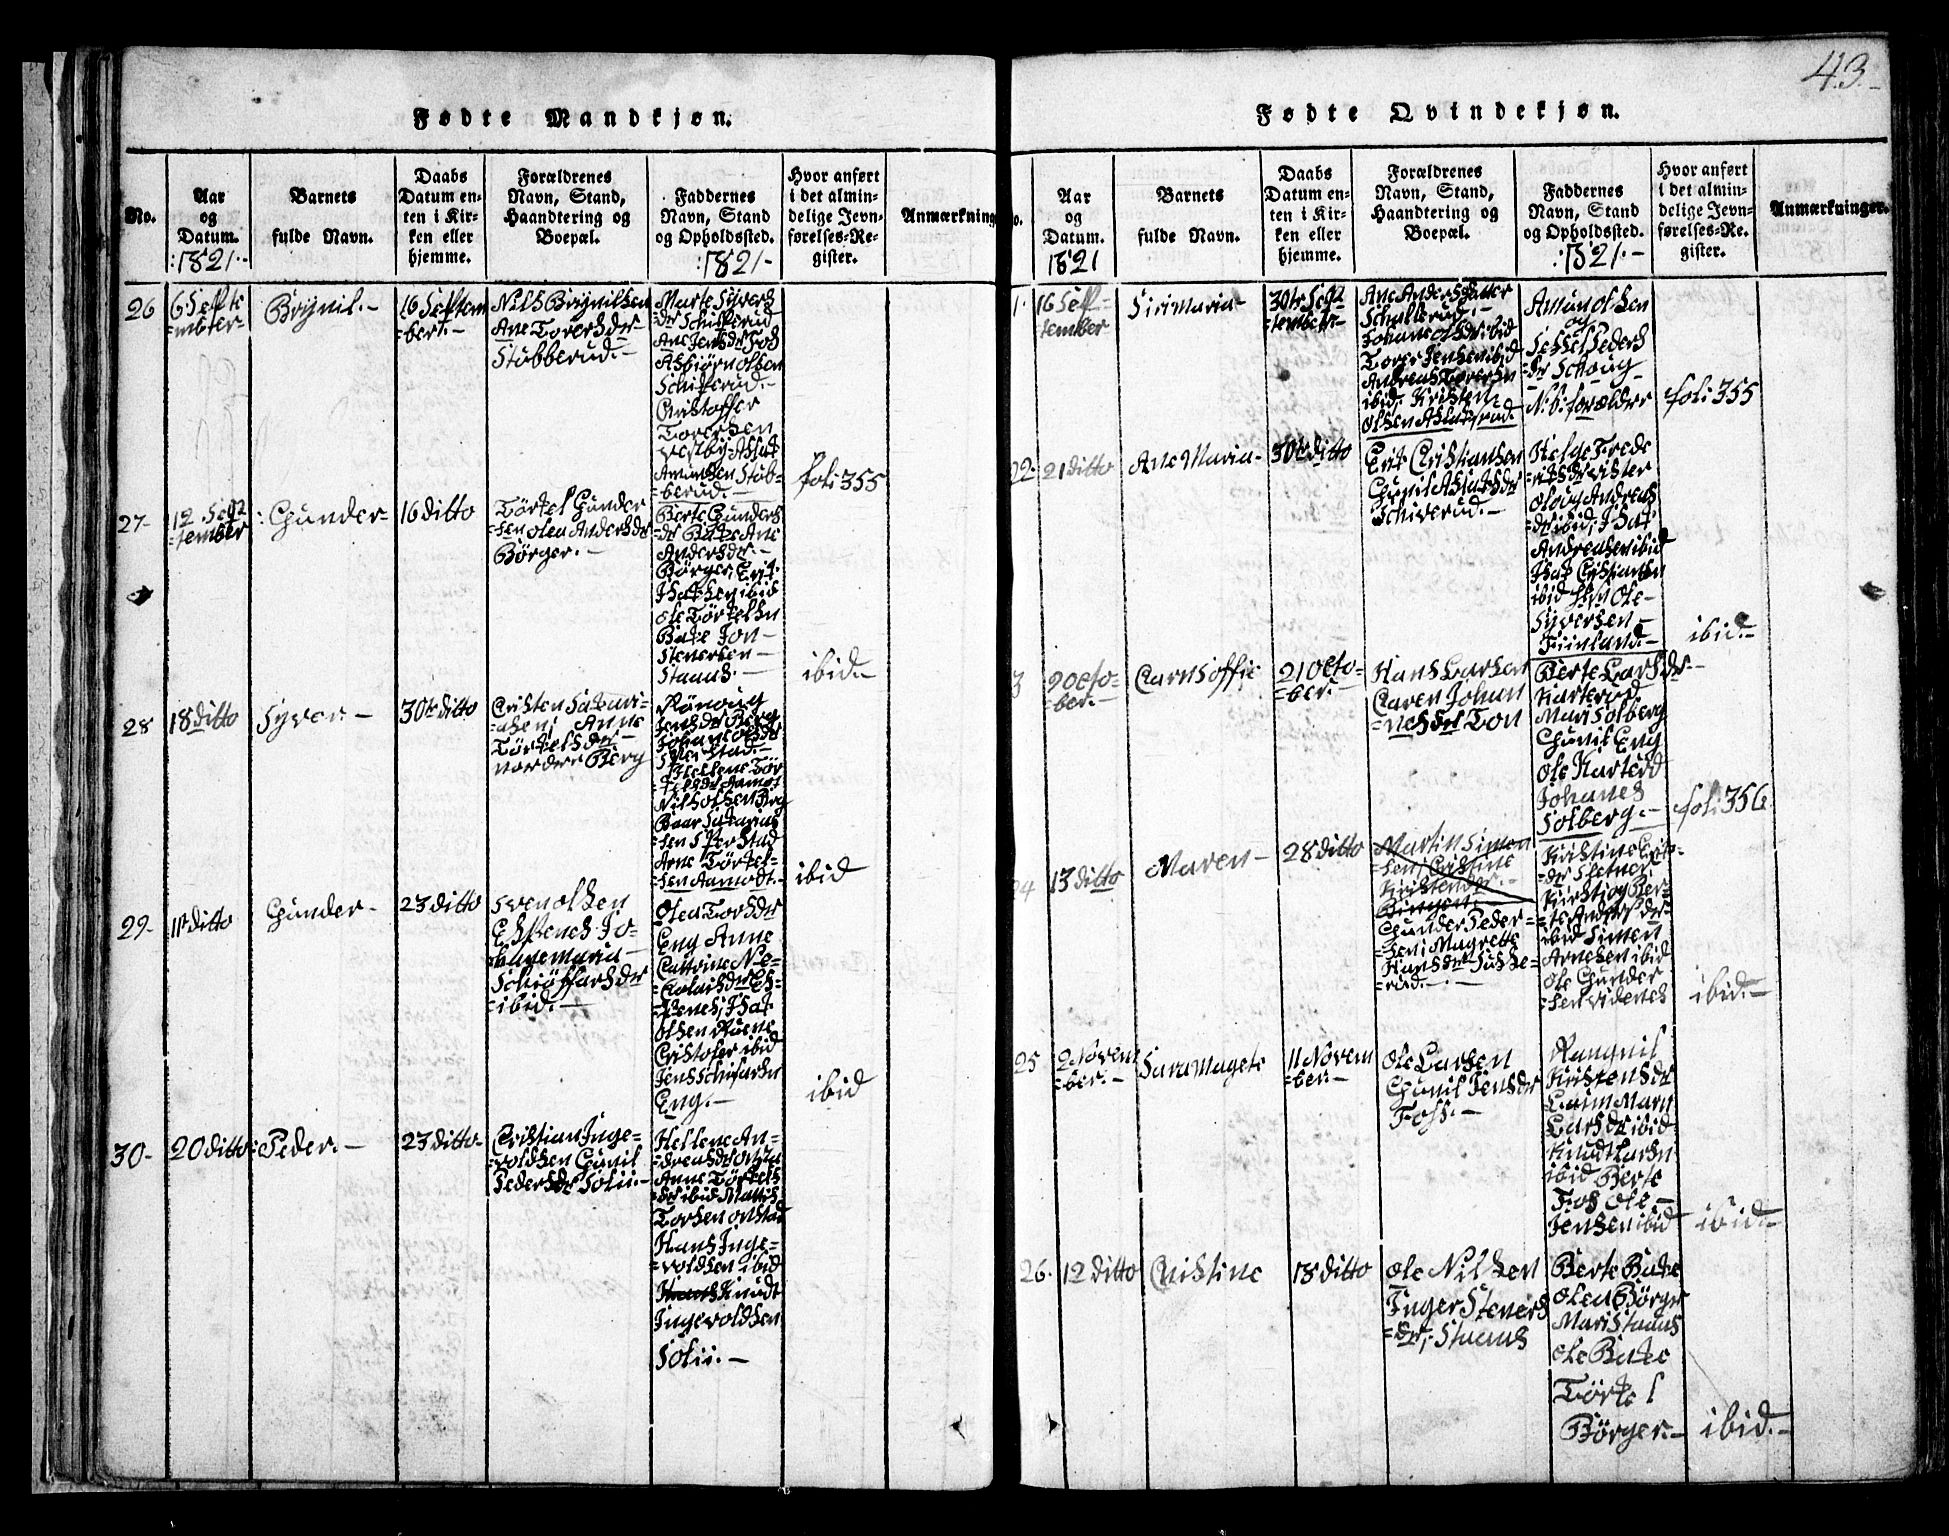 43.-
Fødte Mandkjøn.
No.
Aar
og
Datum.
:1821.-
Barnets
fulde Navn.
Daabs
Datum en-
ten i Kir-
ken eller
hjemme.
Forældrenes
Navn, Stand,
Haandtering og
Boepæl.
Faddernes
Navn, Stand
og Opholdssted.
:1821-
Hvor anført
i det almin-
delige Jevn-
førelses-Re-
gister.
Anmærkning
26
6 Septe
=mber-
Brynil.-
16 Septem
=ber.-
Nils Brynilsen
Ane Torersdr-
Stubberud.-
Marte Syvers
=dr Schifferud
Ane Jensdr Foss
Asbiørn Olsen
Schifferud.-
Cristoffer
Torersen
Vestby Aslak
Amundsen Stub-
=berud.-
fol: 355
27-
12 Sept
=tember
Gunder-
16 ditto
Törkel Gunder
=sen Olea Andersdr
Börger.-
Berte Gunders
=dr Bake Ane
Andersdr.-
Börger, Erik
Isaksen ibid
Ole Törkelsen
Bake Jon-
Stenersen-
Staaus.-
ibid.-
28
18 ditto
Syver.-
30te ditto
Cristen Sakari-
=asen, Anne
Törkelsdr-
nordre Berg
Rönoug
Jensdr Berg
Johane Olsdr
Sperstad.-
Hellene Tör
=kelsdr Aamot
Nils Olsen Brg
Baar Sakarias
=sen Sperstad
Arne Törkel-
=sen Aamodt.-
ibid
29-
11te ditto
Gunder-
23 ditto
Sven Olsen
Espenes Jo-
=hane Maria
Schiøffarsdr
=ibid.-
Olea Torsdr
Eng Anne
Cattrine Ne-
=colaisdr Es-
=penes, Isak
Olsen Ruene
Cristofer ibid
Jens Schifarsn
Eng.-
ibid
30-
20 ditto
Peder.-
23 ditto-
Cristian Inge-
=voldsen Gunil
Pedersdr Solii.-
Hellene An-
=dreasdr Onsta
Anne Törkels
=dr ibid Mattis
Torsen Onstad
Hans Inge-
=voldsen ibid
Knudt
Ingevoldsen
Solii.-
Fødte Qvindekjøn.
o.
Aar
og
Datum.
1821
Barnets
fulde Navn.
Daabs
Datum en-
ten i Kir-
ken eller
hjemme.
Forældrenes
Navn, Stand,
Haandtering og
Boepæl.
Faddernes
Navn, Stand
og Opholdssted.
:1821.-
Hvor anført
i det almin-
delige Jevn-
førelses-Re-
gister.
Anmærkninger.
1.
16 Sep-
tember
Siri Maria-
30te Sept
=tember.-
Ane Andersdatter
Schullerud.-
Johane Olsdr ibid
Torer Jensen ibid
Andreas Torersen
ibid. Kristen
Olsen Aslaksrud.
Amun Olsen
og
Sessel Peders
=dr Schoug
N.b: forældre
fol: 355
22.
21 ditto
Ane Maria-
30te ditto
Erik Cristiansen
Gunil Aslaksdr
Schiverud.-
Helge Frede
=riksdr Vister
Oloug Andreas
=dr ibid, Isak
Andreasen ibid
Isak Cristiansen
ibid Ole-
Syversen-
Fiinland.-
ibid.-
3
2 Octo-
=ber.-
Carn Soffie
21 Octo-
=ber.-
Hans Larsen
Caren Johan
=nesdr Ton
Berte Larsdr.-
Karterud
Mari Solberg
Gunil Eng
Ole Karterd
Johanes
Solberg.-
fol: 356
24
13 ditto
Maren-
28 ditto
Martin Simen
=sen, Cristine
Kristendr.-
Bingen.-
Gunder Peder-
=sen, Magrette
Hansdr Susse-
=rud.-
Kristine
=dr Sletner
Kirsti og Ber-
=te Andersdr.-
ibid Simen
Arnesen ibid
Ole Gunder
=sen Videnes
ibid.-
25
2 Novem
=ber.-
Sara Magete
11 Novem
=ber.-
Ole Larsen
Gunil Jensdr
Foss.-
Rangnil
Kristensdr
Caim Marn
Larsdr ibid
Knudt Larsn
ibid Berte
Fos Ole-
Jensen ibid
ibid-
26.
12 ditto
Cristine
18 ditto
Ole Nilsen
Inger Steners
=dr, Staaus
Berte Bake
Olea Börger
Mari Staaus
Ole Bake
Törkel
Börger.-
ibid.-